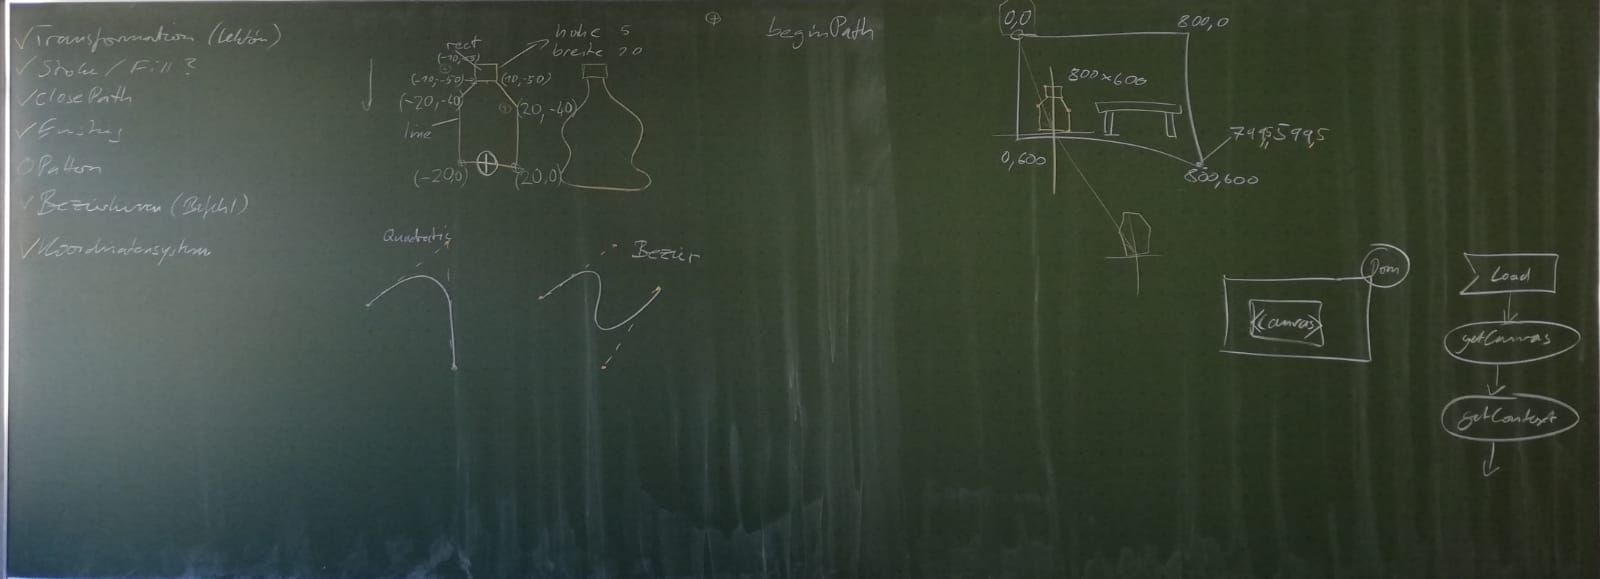 Transformation (Lektion)
Stroke / Fill ?
ClosePath
Pattern
Bezierkurven (Befehl)
Koordinatensystem
rect
höhe 5
breite 20
(-10,-50)
(10,-50)
(-20,-40)
(20,-40)
line
(-20,0)
(20,0)
Quadratic
Bezier
beginPath
0,0
800,0
800x600
0,600
799,5 599,5
800,600
Dom
<Canvas>
Load
getCanvas
getContext